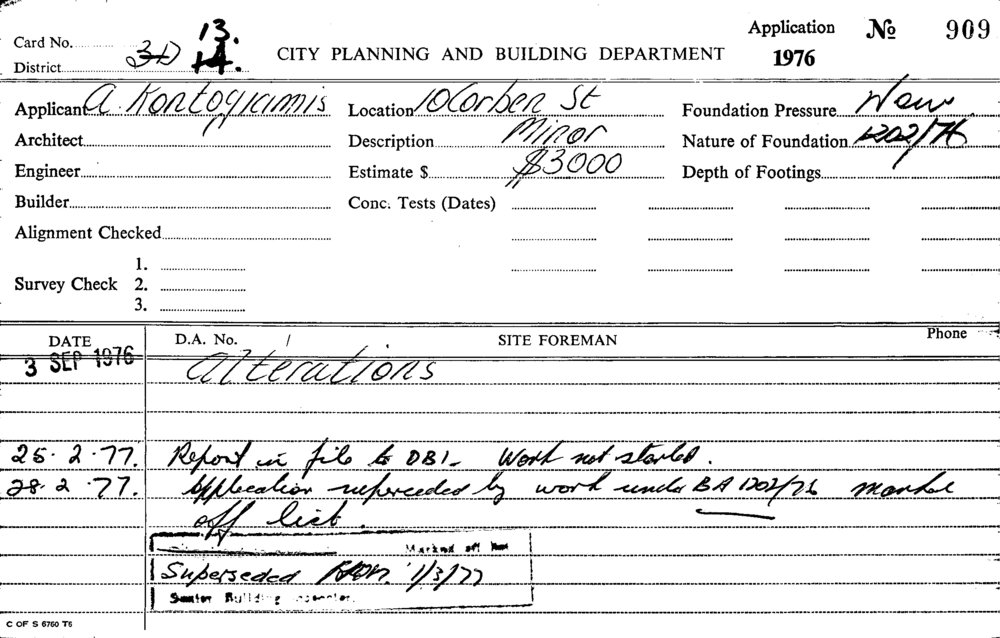 Card No. 13.
District 3D 14.
CITY PLANNING AND BUILDING DEPARTMENT
Application No 909
1976
Applicant A. Kontogiannis Location 10 Corben St Foundation Pressure Now
Architect Description Minor Nature of Foundation 1202/76
Engineer Estimate $ $3000 Depth of Footings
Builder Conc. Tests (Dates)
Alignment Checked
1.
Survey Check 2.
3.
DATE D.A. No. / SITE FOREMAN Phone
3 SEP 1976 Alterations
25.2.77. Report in file to DBI. Work not started.
28.2.77. Application superceded by work under BA 1202/76 marked
off list.
Marked off
Superseded 1/3/77
Senior Building Inspector.
C OF S 6760 T6